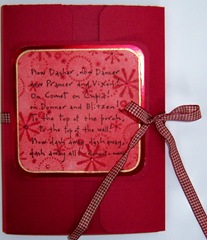 Now Dasher, now Dancer
now Prancer and Vixen!
On Comet on Cupid!
on Donner and Blitzen!
To the top of the porch,
to the top of the wall!
Now dash away, dash away,
dash away all